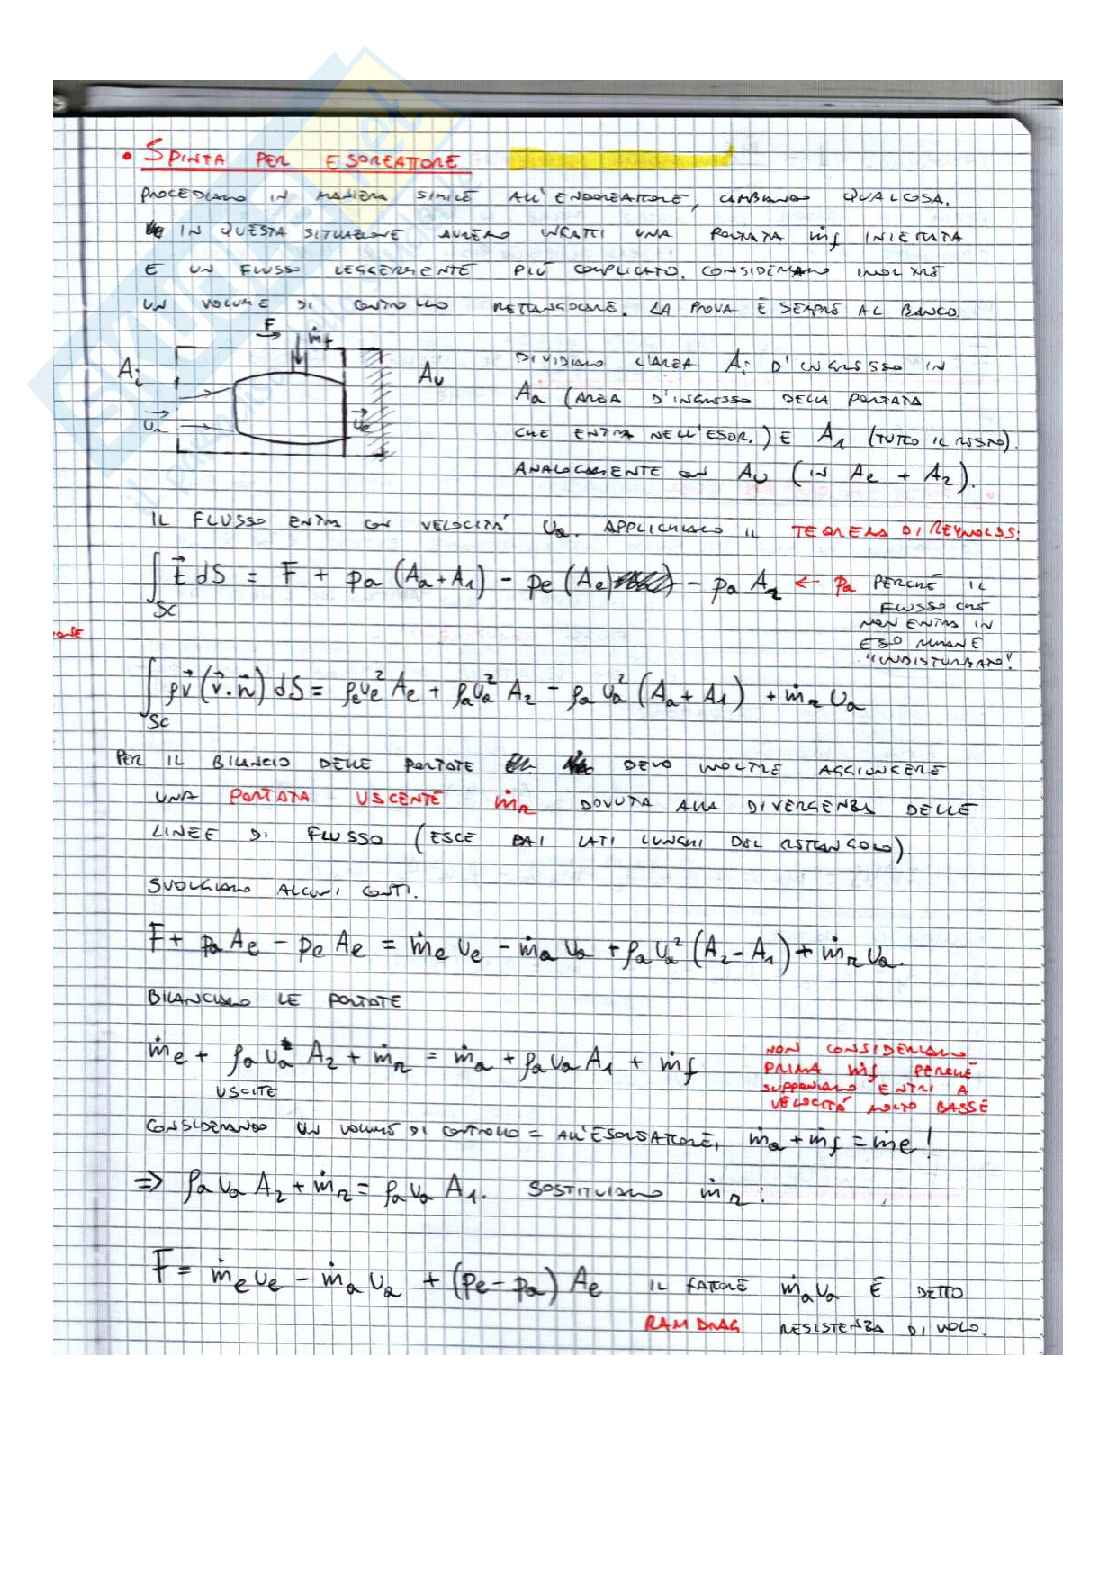 • SPINTA PER ESOREATTORE
PROCEDIAMO IN MANIERA SIMILE ALL'ENDOREATTORE, CAMBIANDO QUALCOSA.
IN QUESTA SITUAZIONE AVREMO INFATTI UNA PORTATA ṁf INIETTATA
E UN FLUSSO LEGGERMENTE PIÙ COMPLICATO. CONSIDERIAMO INOLTRE
UN VOLUME DI CONTROLLO RETTANGOLARE. LA PROVA È SEMPRE AL BANCO.
F ṁf
Ai Au
ua
DIVIDIAMO L'AREA Ai D'INGRESSO IN
Aa (AREA D'INGRESSO DELLA PORTATA
CHE ENTRA NELL'ESOR.) E A1 (TUTTO IL RESTO).
ANALOGAMENTE CON Au (IN Ae + A2).
IL FLUSSO ENTRA CON VELOCITÀ Ua. APPLICHIAMO IL TEOREMA DI REYNOLDS:
∫SC t⃗ dS = F + pa (Aa + A1) - pe (Ae) - pa A2 ← pa PERCHÉ IL
FLUSSO CHE
NON ENTRA IN
ESO RIMANE
"INDISTURBATO".
∫SC ρv⃗ (v⃗ · n⃗) dS = ρe ue² Ae + ρa ua² A2 - ρa ua² (Aa + A1) + ṁr ua
PER IL BILANCIO DELLE PORTATE DEVO INOLTRE AGGIUNGERE
UNA PORTATA USCENTE ṁr DOVUTA ALLA DIVERGENZA DELLE
LINEE DI FLUSSO (ESCE DAI LATI LUNGHI DEL RETTANGOLO)
SVOLGIAMO ALCUNI CONTI.
F + pa Ae - pe Ae = ṁe ue - ṁa ua + ρa ua² (A2 - A1) + ṁr ua.
BILANCIAMO LE PORTATE
ṁe + ρa ua A2 + ṁr = ṁa + ρa ua A1 + ṁf
USCITE
NON CONSIDERIAMO
PRIMA ṁf PERCHÉ
SUPPONIAMO ENTRI A
VELOCITÀ MOLTO BASSE
CONSIDERANDO UN VOLUME DI CONTROLLO = ALL'ESOREATTORE, ṁa + ṁf = ṁe!
⇒ ρa ua A2 + ṁr = ρa ua A1. SOSTITUIAMO ṁr:
F = ṁe ue - ṁa ua + (pe - pa) Ae IL FATTORE ṁa ua È DETTO
RAM DRAG RESISTENZA DI VOLO.